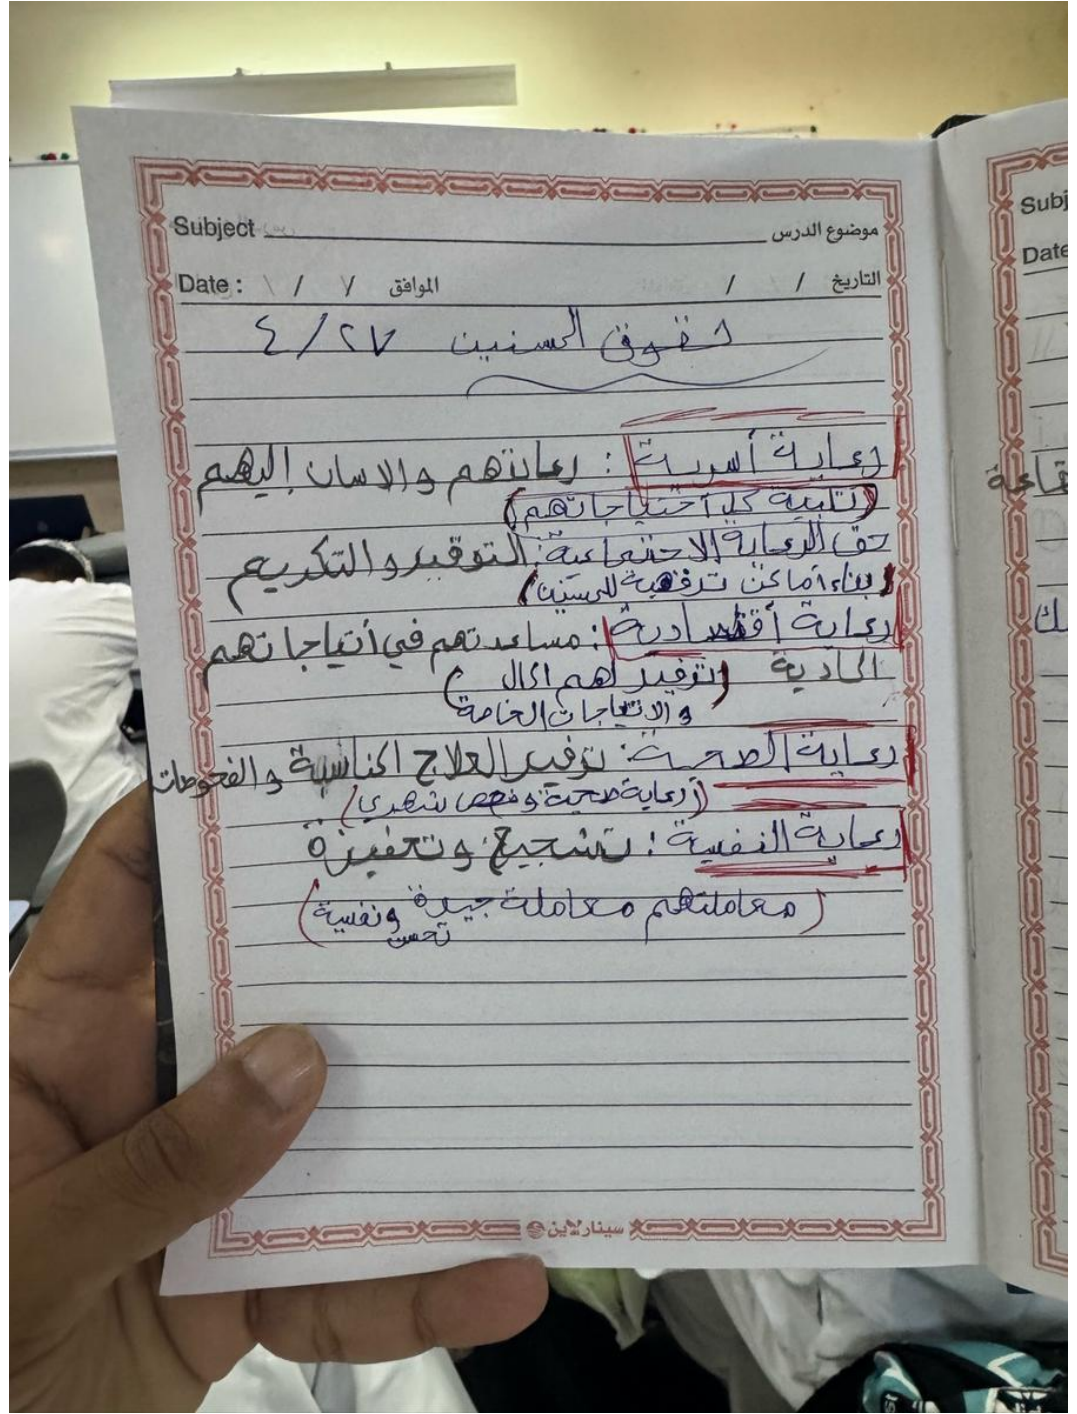 Subject موضوع الدرس
Date : / / الموافق / / التاريخ
حقوق المسنين ٤/٢٧
رعاية أسرية : رعايتهم والاسان إليهم
(تلبية كل أحتياجاتهم)
حق الرعاية الاجتماعية: التوقير والتكريم
(بناء أماكن ترفهية للمسنين)
رعاية أقتصادية: مساعدتهم في أتياجاتهم
المادية (توفير لهم المال
والاتياجات الخاصة)
رعاية الصحية: توفير العلاج المناسبة والفحوصات
(رعاية صحية وفحص شهري)
رعاية النفسية: تشجيع وتحفيزة
(معاملتهم معاملة جيدة ونفسية
تحسن
سينارلاين
Subj
Date